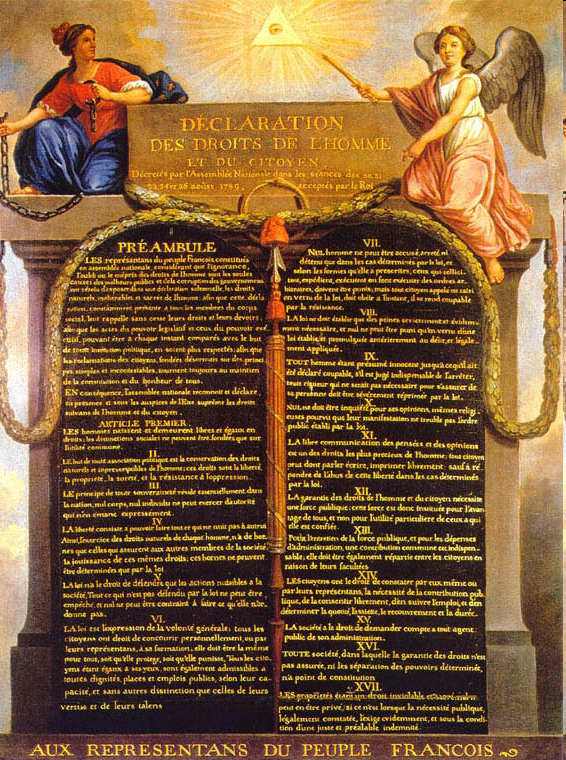 DÉCLARATION
DES DROITS DE L'HOMME
ET DU CITOYEN,
Décretés par l'Assemblée Nationale dans les séances des 20, 21
23, 24 et 26 août 1789, acceptés par le Roi
PRÉAMBULE
LES représentans du peuple François constitués
en assemblée nationale, considérant que l'ignorance,
l'oubli ou le mépris des droits de l'homme sont les seules
causes des malheurs publics et de la corruption des gouvernemens
ont résolu d'exposer dans une déclaration solemnelle, les droits
naturels, inaliénables et sacrés de l'homme; afin que cette décla
ration, constamment présente a tous les membres du corps
social, leur rappelle sans cesse leurs droits et leurs devoirs;
afin que les actes du pouvoir législatif et ceux du pouvoir exé
cutif, pouvant être a chaque instant comparés avec le but
de toute institution politique, en soient plus respectés; afin que
les réclamations des citoyens, fondées désormais sur des princi
pes simples et incontestables, tournent toujours au maintien
de la constitution et du bonheur de tous.
EN conséquence, l'assemblée nationale reconnoit et déclare,
en présence et sous les auspices de l'Etre suprême les droits
suivans de l'homme et du citoyen.
ARTICLE PREMIER.
LES hommes naissent et demeurent libres et égaux en
droits; les distinctions sociales ne peuvent être fondées que sur
l'utilité commune.
II.
LE but de toute association politique est la conservation des droits
naturels et imprescriptibles de l'homme; ces droits sont la liberté,
la propriété, la sureté, et la résistance à l'oppression.
III
LE principe de toute souveraineté réside essentiellement dans
la nation, nul corps, nul individu ne peut exercer d'autorité
qui n'en émane expressément.
IV
LA liberté consiste a pouvoir faire tout ce qui ne nuit pas à autrui
Ainsi, l'exercice des droits naturels de chaque homme, n'a de bor
nes que celles qui assurent aux autres membres de la société
la jouissance de ces mêmes droits; ces bornes ne peuvent
être déterminées que par la loi
V
LA loi n'a le droit de défendre que les actions nuisibles à la
société. Tout ce qui n'est pas défendu par la loi ne peut être
empêché, et nul ne peut être contraint à faire ce qu'elle n'or-
donne pas.
VI.
LA loi est l'expression de la volonté générale; tous les
citoyens ont droit de concourir personnellement, ou par
leurs représentans, à sa formation; elle doit être la même
pour tous, soit qu'elle protege, soit qu'elle punisse, Tous les cito
yens étant égaux à ses yeux, sont également admissibles à
toutes dignités, places et emplois publics, selon leur ca-
pacité, et sans autres distinction que celles de leurs
vertus et de leurs talens
VII.
NUL homme ne peut être accusé, arreté, ni
détenu que dans les cas déterminés par la loi, et
selon les formes qu'elle a prescrites, ceux qui sollici-
tent, expédient, exécutent ou font exécuter des ordres ar-
bitraires, doivent être punis; mais tout citoyen appelé ou saisi
en vertu de la loi, doit obéir a l'instant, il se rend coupable
par la résistance.
VIII.
LA loi ne doit établir que des peines strictement et évidem-
ment nécessaire, et nul ne peut être puni qu'en vertu d'une
loi établie et promulguée antérierement au délit, et légale-
ment appliquée.
IX.
TOUT homme étant présumé innocent jusqu'à ce qu'il ait
été déclaré coupable, s'il est jugé indispensable de l'arrêter,
toute rigueur qui ne serait pas nécessaire pour s'assurer de
sa personne doit être sévérement réprimée par la loi.
X.
NUL ne doit être inquiété pour ses opinions, mêmes religi-
euses pourvu que leur manifestation ne trouble pas l'ordre
public établi par la loi.
XI.
LA libre communication des pensées et des opinions
est un des droits les plus precieux de l'homme; tout citoyen
peut dont parler écrire, imprimer librement: sauf à ré-
pondre de l'abus de cette liberté dans les cas déterminés
par la loi.
XII
LA garantie des droits de l'homme et du citoyen nécessite
une force publique; cette force est donc instituée pour l'avan
tage de tous, et non pour l'utilité particuliere de ceux a qui
elle est confiée.
XIII.
Pour l'entretien de la force publique, et pour les dépenses
d'administration, une contribution commune est indispen-
sable; elle doit être également répartie entre les citoyens en
raison de leurs facultées
XIV.
LES citoyens ont le droit de constater par eux même ou
par leurs représentans, la nécessité de la contribution pub
lique, de la consentir librement, d'en suivre l'emploi, et d'en
déterminer la quotité, l'assiette, le recouvrement et la durée.
XV.
LA société a le droit de demander compte a tout agent
public de son administration.
XVI.
TOUTE société, dans laquelle la garantie des droits n'est
pas assurée, ni les séparation des pouvoirs déterminée,
n'a point de constitution
XVII.
LES propriétés étant un droit inviolable et sacré, nul ne
peut en être privé, si ce n'est lorsque la nécessité publique,
légalement constatée, l'exige evidemment, et sous la condi-
tion d'une juste et préalable indemnité.
AUX REPRESENTANS DU PEUPLE FRANCOIS